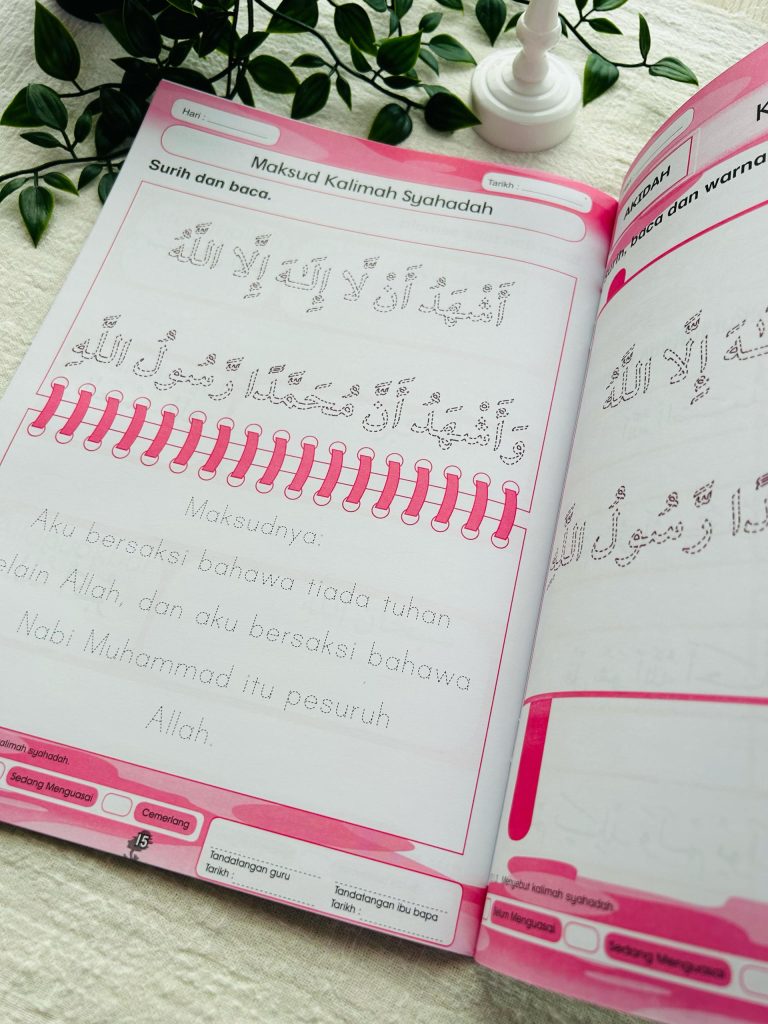 Hari :
Maksud Kalimah Syahadah
Tarikh :
Surih dan baca.
أَشْهَدُ أَنْ لَّا إِلَـٰهَ إِلَّا اللَّهُ
وَأَشْهَدُ أَنَّ مُحَمَّدًا رَّسُولُ اللَّهِ
Maksudnya:
Aku bersaksi bahawa tiada tuhan
elain Allah, dan aku bersaksi bahawa
Nabi Muhammad itu pesuruh
Allah.
kalimah syahadah.
Sedang Menguasai
Cemerlang
15
Tandatangan guru
Tarikh :
Tandatangan ibu bapa
Tarikh :
K
AKIDAH
baca dan warna
إِلَّا اللَّهُ
رَّسُولُ اللَّهِ
Menyebut kalimah syahadah
Belum Menguasai
Sedang Menguasai